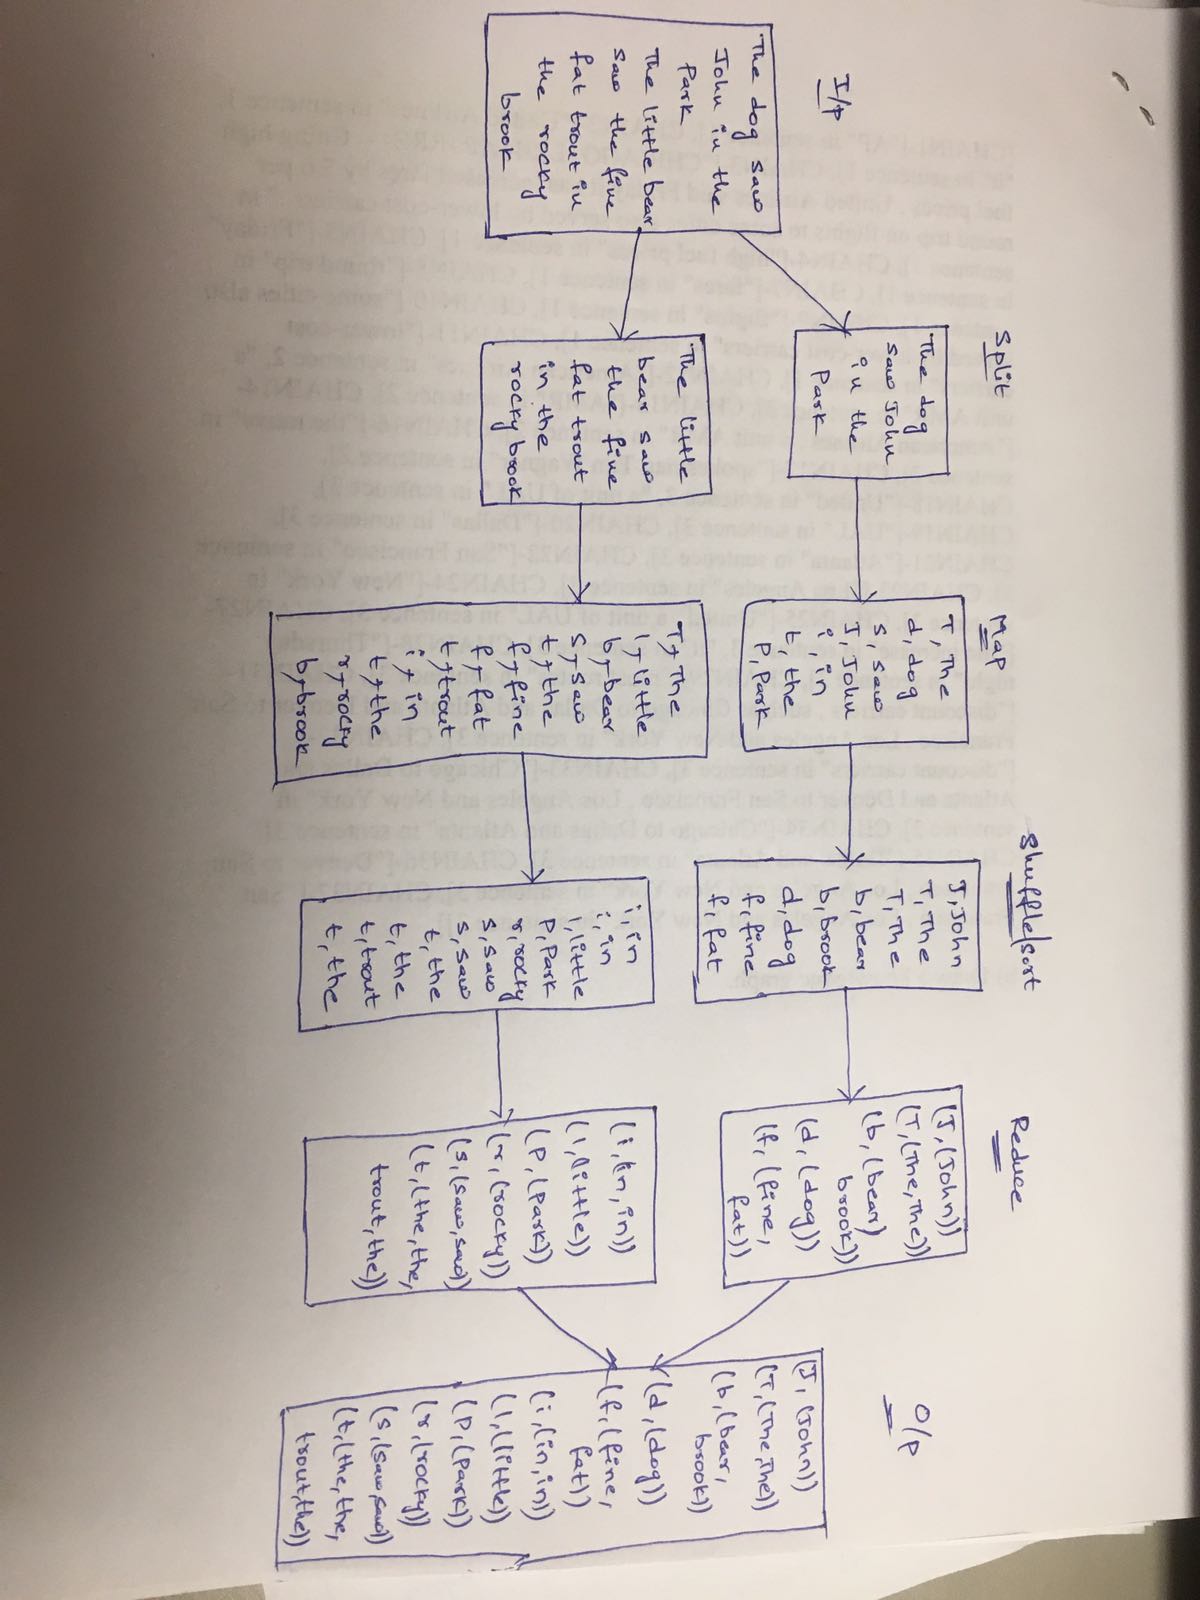 I/p
The dog saw
John in the
Park
The little bear
saw the fine
fat trout in
the rocky
brook
Split
The dog
saw John
in the
Park
The little
bear saw
the fine
fat trout
in the
rocky brook
Map
T, The
d, dog
s, saw
J, John
i, in
t, the
P, Park
T, The
l, little
b, bear
s, saw
t, the
f, fine
f, fat
t, trout
i, in
t, the
r, rocky
b, brook
Shuffle/sort
J, John
T, The
T, The
b, bear
b, brook
d, dog
f, fine
f, fat
i, in
i, in
l, little
P, Park
r, rocky
s, saw
s, saw
t, the
t, the
t, trout
t, the
Reduce
(J, (John))
(T, (The, The))
(b, (bear)
brook))
(d, (dog))
(f, (fine,
fat))
(i, (in, in))
(l, (little))
(P, (Park))
(r, (rocky))
(s, (saw, saw))
(t, (the, the,
trout, the))
O/p
(J, (John))
(T, (The, The))
(b, (bear,
brook))
(d, (dog))
(f, (fine,
fat))
(i, (in, in))
(l, (little))
(P, (Park))
(r, (rocky))
(s, (saw, saw))
(t, (the, the,
trout, the))